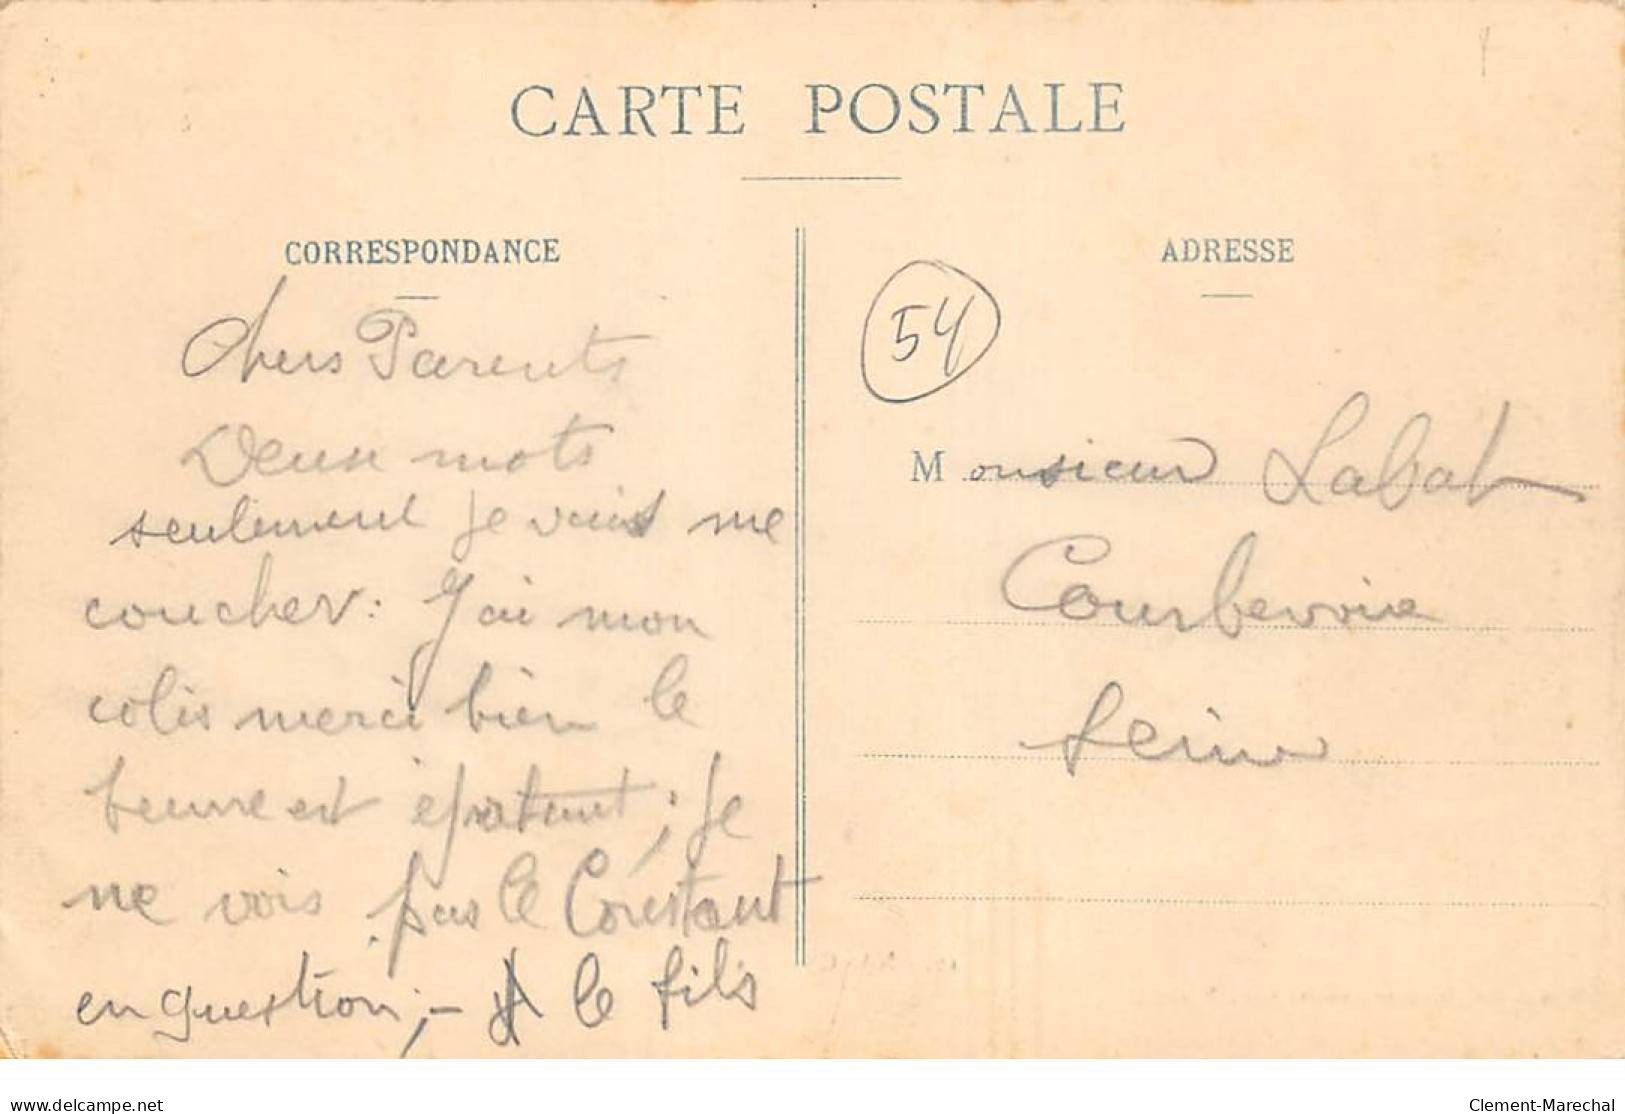 CARTE POSTALE
CORRESPONDANCE
Chers Parents
Deux mots
seulement je vais me
coucher. J'ai mon
colis merci bien le
beurre est épatant; je
ne vois pas le Constant
en question;- le fils
ADRESSE
54
Monsieur Labat
Courbevoie
Seine
delcampe.net
Clement-Marechal